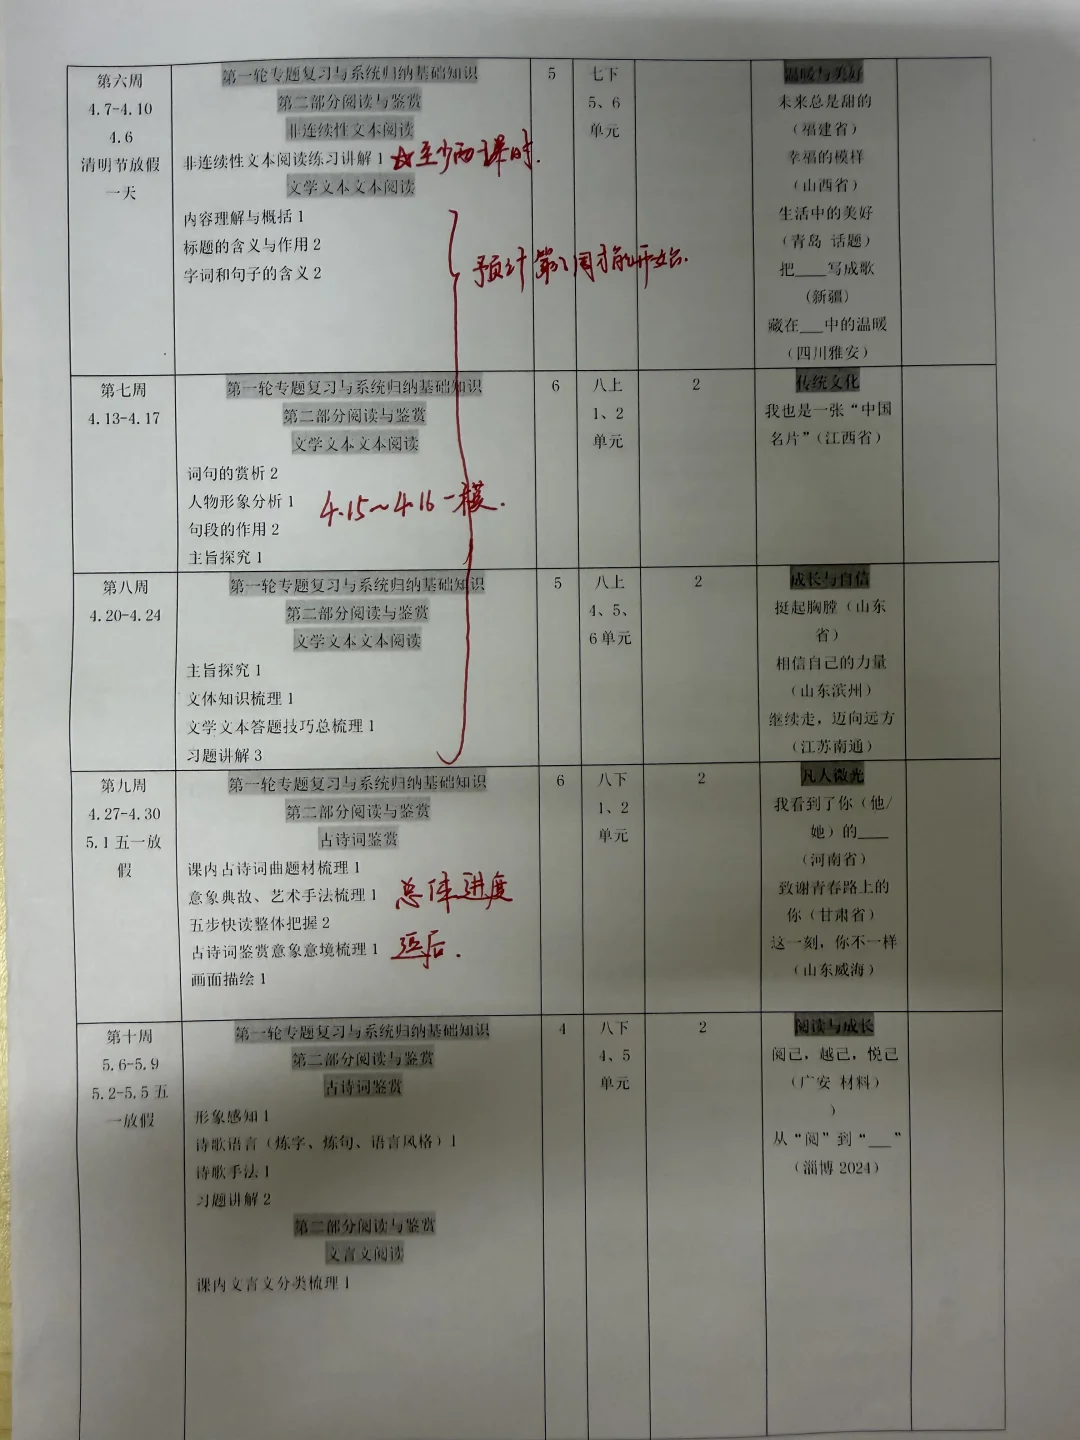 第六周
4.7-4.10
4.6
清明节放假
一天
第一轮专题复习与系统归纳基础知识
第二部分阅读与鉴赏
非连续性文本阅读
非连续性文本阅读练习讲解 1 至少两课时.
文学文本文本阅读
内容理解与概括 1
标题的含义与作用 2
字词和句子的含义 2
预计第八周才能开始.
5
七下
5、6
单元
温暖与美好
未来总是甜的
（福建省）
幸福的模样
（山西省）
生活中的美好
（青岛 话题）
把____写成歌
（新疆）
藏在___中的温暖
（四川雅安）
第七周
4.13-4.17
第一轮专题复习与系统归纳基础知识
第二部分阅读与鉴赏
文学文本文本阅读
词句的赏析 2
人物形象分析 1
句段的作用 2
主旨探究 1
4.15～4.16 一模.
6
八上
1、2
单元
2
传统文化
我也是一张“中国
名片”（江西省）
第八周
4.20-4.24
第一轮专题复习与系统归纳基础知识
第二部分阅读与鉴赏
文学文本文本阅读
主旨探究 1
文体知识梳理 1
文学文本答题技巧总梳理 1
习题讲解 3
5
八上
4、5、
6 单元
2
成长与自信
挺起胸膛（山东
省）
相信自己的力量
（山东滨州）
继续走，迈向远方
（江苏南通）
第九周
4.27-4.30
5.1 五一放
假
第一轮专题复习与系统归纳基础知识
第二部分阅读与鉴赏
古诗词鉴赏
课内古诗词曲题材梳理 1
意象典故、艺术手法梳理 1
五步快读整体把握 2
古诗词鉴赏意象意境梳理 1
画面描绘 1
总体进度
延后.
6
八下
1、2
单元
2
凡人微光
我看到了你（他/
她）的____
（河南省）
致谢青春路上的
你（甘肃省）
这一刻，你不一样
（山东威海）
第十周
5.6-5.9
5.2-5.5 五
一放假
第一轮专题复习与系统归纳基础知识
第二部分阅读与鉴赏
古诗词鉴赏
形象感知 1
诗歌语言（炼字、炼句、语言风格）1
诗歌手法 1
习题讲解 2
第二部分阅读与鉴赏
文言文阅读
课内文言文分类梳理 1
4
八下
4、5
单元
2
阅读与成长
阅己，越己，悦己
（广安 材料）
）
从“阅”到“___”
（淄博 2024）